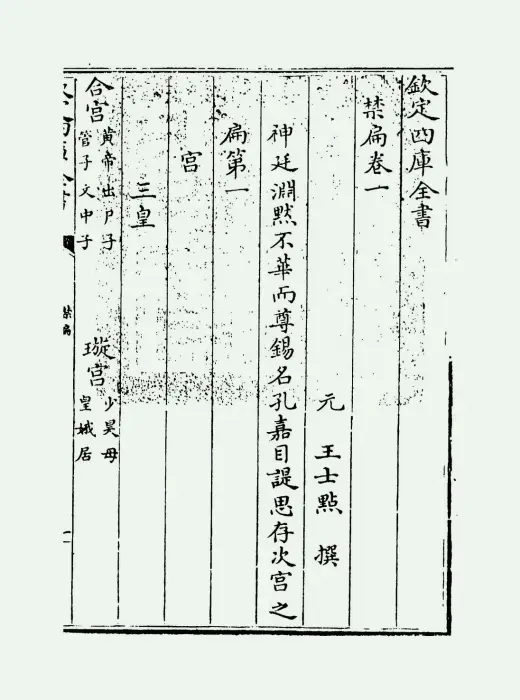 欽定四庫全書
禁扁卷一
元 王士點 撰
神廷淵默不華而尊錫名孔嘉目諟思存次宫之
扁第一
宫
三皇
合宫 黄帝出尸子管子文中子 璇宫 少昊母皇娥居
禁扁
一